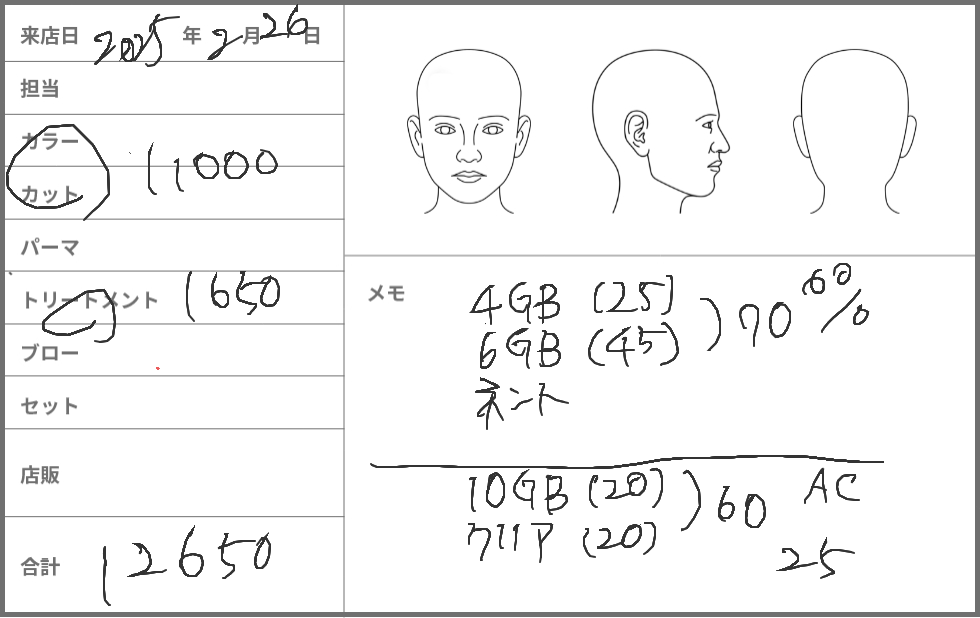 来店日 2025 年 2 月 26 日
担当
カラー
カット 11000
パーマ
トリートメント 1650
ブロー
セット
店販
合計 12650
メモ
4GB (25)
6GB (45) ) 70 60%
ネント
10GB (20)
クリア (20) ) 60
AC
25